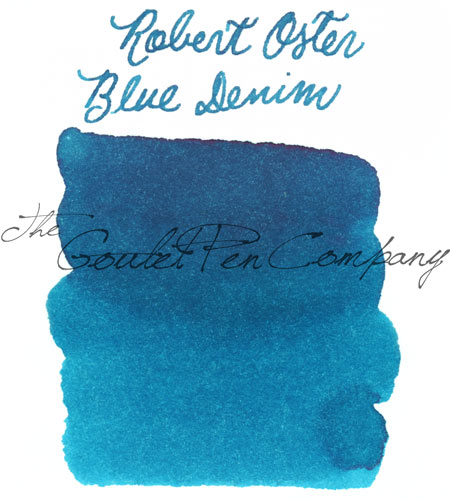 Robert Oster
Blue Denim
The Goulet Pen Company